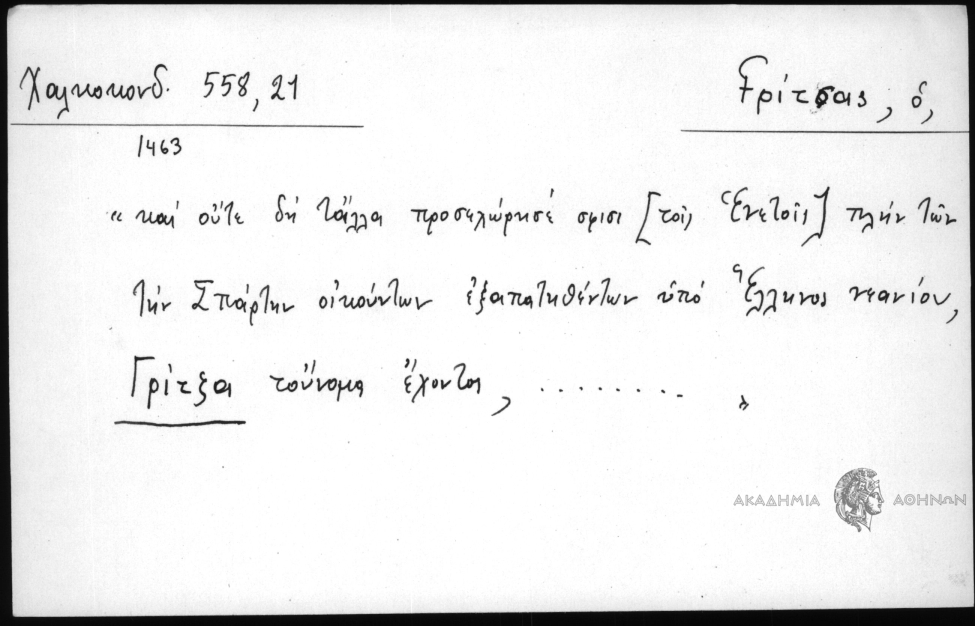 Χαλκοκονδ. 558, 21
Γρίτσας, ὁ,
1463
« καὶ οὔτε δὴ τἆλλα προσεχώρησέ σφισι [τοῖς Ἑνετοῖς] πλὴν τῶν
τὴν Σπάρτην οἰκούντων ἐξαπατηθέντων ὑπό Ἕλληνος νεανίου,
Γρίτζα τοὔνομα ἔχοντος, ........ »
ΑΚΑΔΗΜΙΑ ΑΘΗΝΩΝ